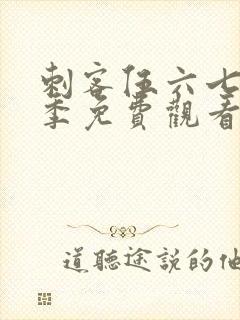 刺客伍六七
季免費觀看
道聽途說的他